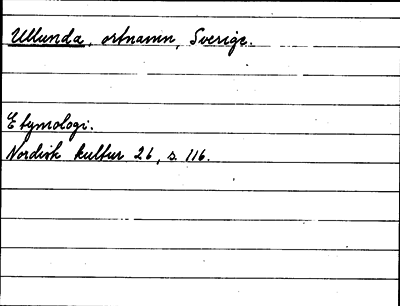 Ullunda, ortnamn, Sverige.
Etymologi.
Nordisk kultur 26, s. 116.